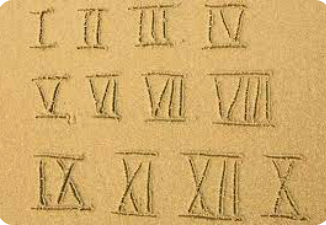 I II III IV
V VI VII VIII
IX XI XII X